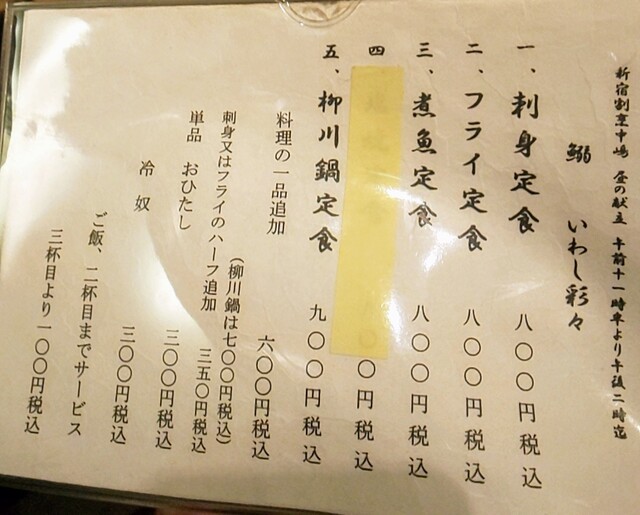 新宿割烹中嶋 昼の献立 午前十一時半より午後二時迄
鰯 いわし彩々
一、刺身定食 八〇〇円税込
二、フライ定食 八〇〇円税込
三、煮魚定食 八〇〇円税込
四 〇〇円税込
五、柳川鍋定食 九〇〇円税込
料理の一品追加 六〇〇円税込
(柳川鍋は七〇〇円税込)
刺身又はフライのハーフ追加 三五〇円税込
単品 おひたし 三〇〇円税込
冷奴 三〇〇円税込
ご飯、二杯目までサービス
三杯目より一〇〇円税込